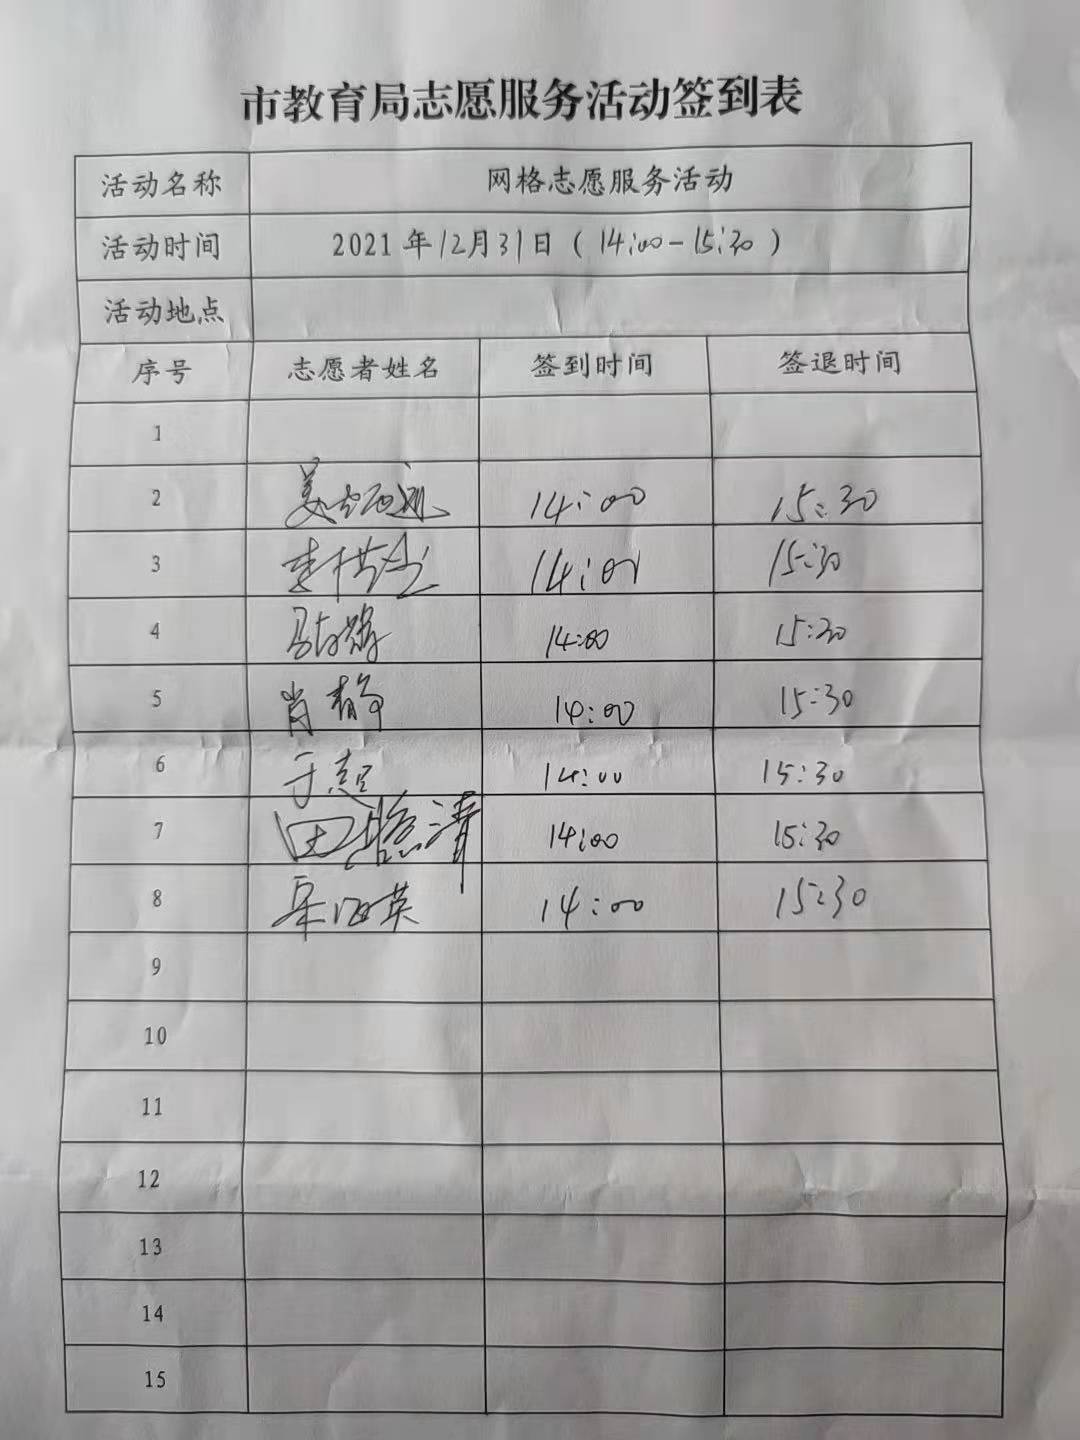 市教育局志愿服务活动签到表
活动名称 网格志愿服务活动
活动时间 2021年12月31日(14:00-15:30)
活动地点
序号 志愿者姓名 签到时间 签退时间
1
2 14:00 15:30
3 14:00 15:30
4 14:00 15:30
5 肖静 14:00 15:30
6 于超 14:00 15:30
7 田 清 14:00 15:30
8 14:00 15:30
9
10
11
12
13
14
15